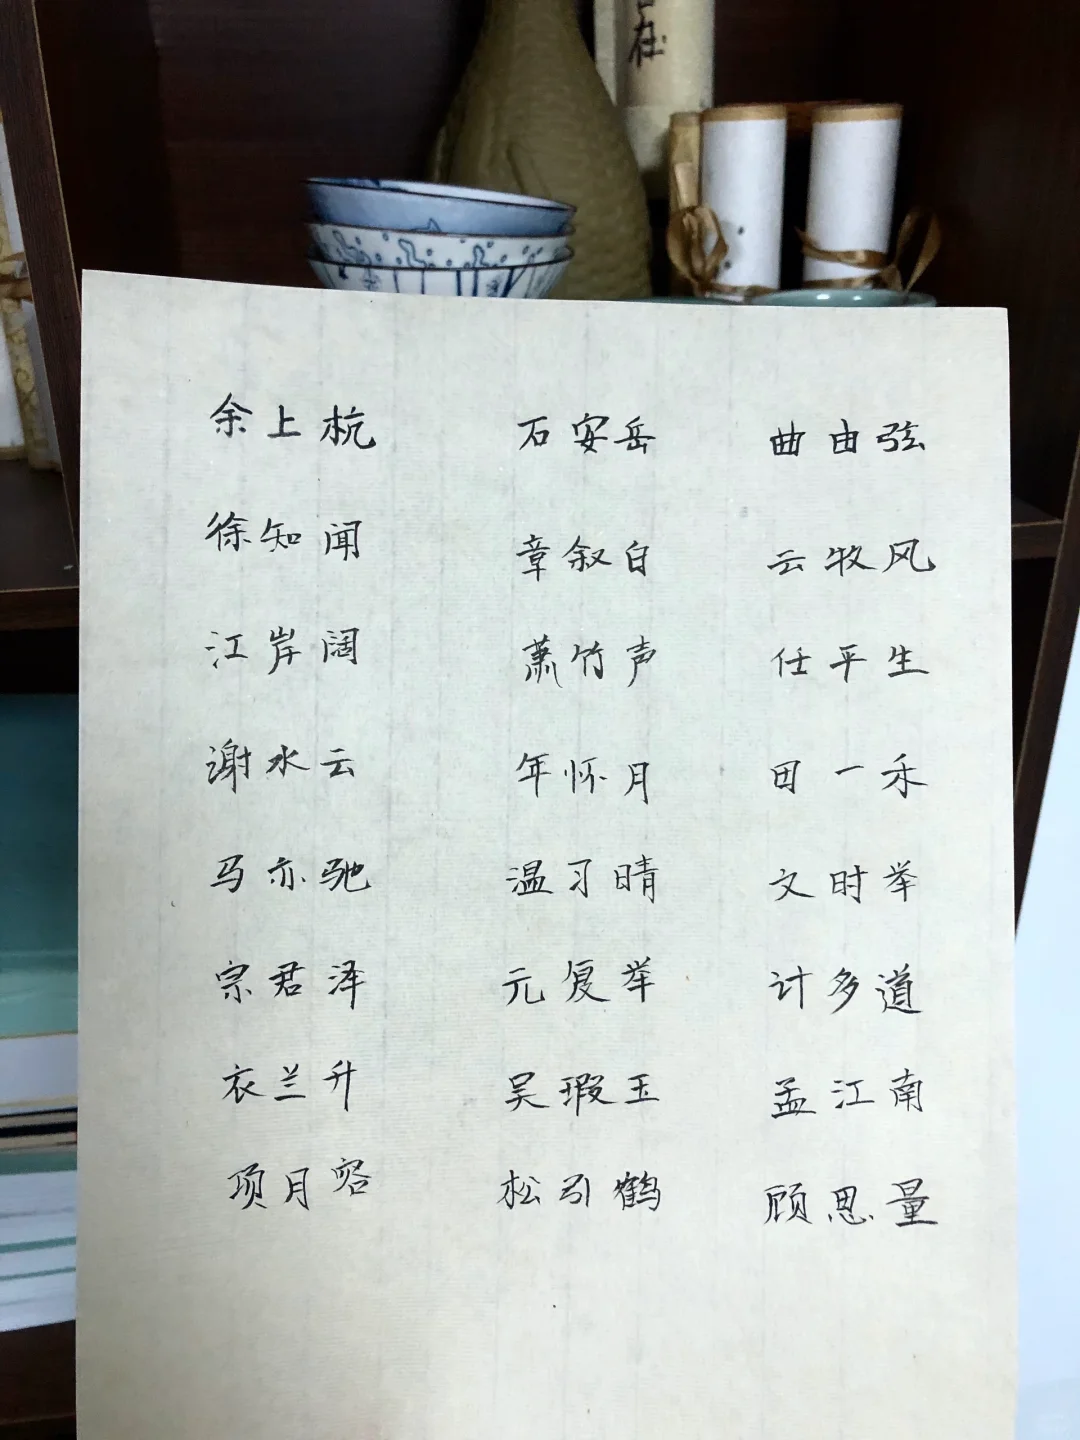 在
余上杭 石安岳 曲由弦
徐知闻 章叙白 云牧风
江岸阔 萧竹声 任平生
谢水云 年怀月 田一禾
马亦驰 温习晴 文时举
宗君泽 元复举 计多道
衣兰升 吴瑕玉 孟江南
项月容 松引鹤 顾思量